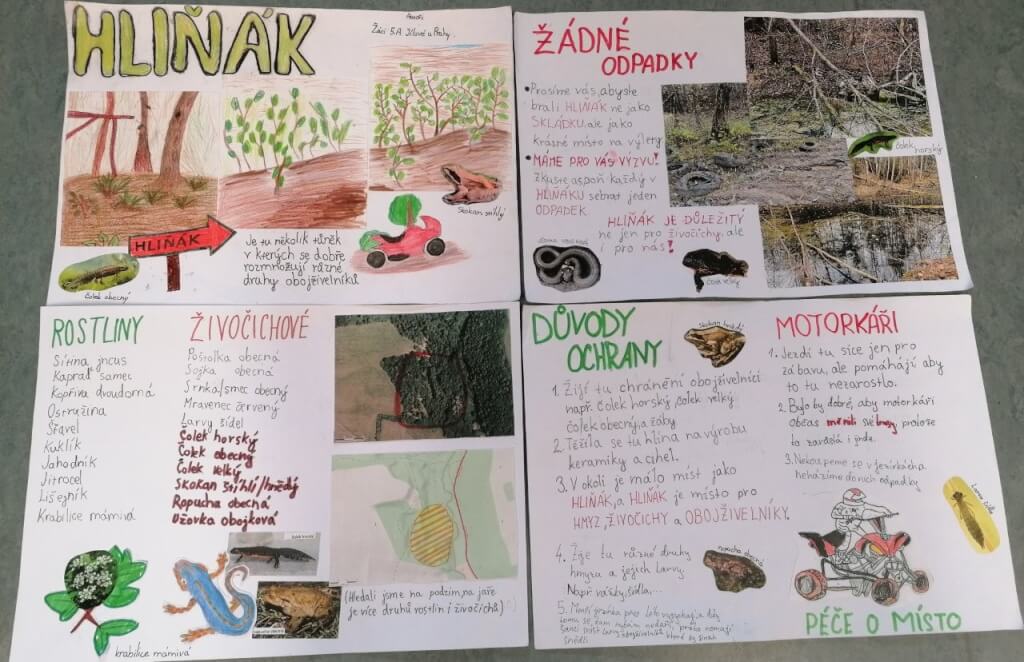 HLIŇÁK
Autoři
Žáci 5.A Jílové u Prahy
Skokan štíhlý
HLIŇÁK
Je tu několik tůněk
v kterých se dobře
rozmnožují různé
drahy obojživelníků
Čolek obecný
ŽÁDNÉ
ODPADKY
• Prosíme vás, abyste
brali HLIŇÁK ne jako
SKLÁDKU, ale jako
krásné místo na výlety
• MÁME PRO VÁS VÝZVU!
zkuste aspoň každý v
HLIŇÁKU sebrat jeden
ODPADEK.
HLIŇÁK JE DŮLEŽITÝ
ne jen pro živočichy, ale
i pro nás!
čolek horský
Užovka obojková
Čolek velký
ROSTLINY
Sítina jncus
Kapraď samec
Kopřiva dvoudomá
Ostružina
Šťavel
Kuklík
Jahodník
Jitrocel
Lišejník
Krabilice mámivá
krabilice mámivá
ŽIVOČICHOVÉ
Poštolka obecná
Sojka obecná
Srnka/smec obecný
Mravenec červený
Larvy šídel
Čolek horský
Čolek obecný
Čolek velký
Skokan štíhlí/hnědý
Ropucha obecná
Užovka obojková
(Hledali jsme na podzim, na jaře
je více druhů rostlin i živočichů)
DŮVODY
OCHRANY
Skokan hnědý
1. Žijí tu chránění obojživelníci
např. čolek horský, čolek velký
čolek obecný, žáby
2. Těžila se tu hlína na výrobu
keramiky a cihel.
3. V okolí je málo míst jako
HLIŇÁK, a HLIŇÁK je místo pro
HMYZ, ŽIVOČICHY a OBOJŽIVELNÍKY.
4. Žije tu různé druhy
hmyzu a jejich larvy.
Např. vážky, šídla...
ropucha obecná
5.
MOTORKÁŘI
1. Jezdí tu sice jen pro
zábavu, ale pomáhají aby
to tu nezarostlo.
2. Bylo by dobré, aby motorkáři
občas měnili své trasy protože
to zarůstá i jinde.
3. Nekoupeme se v jezírkách a
neházíme do nich odpadky
Larva šídla
PÉČE O MÍSTO